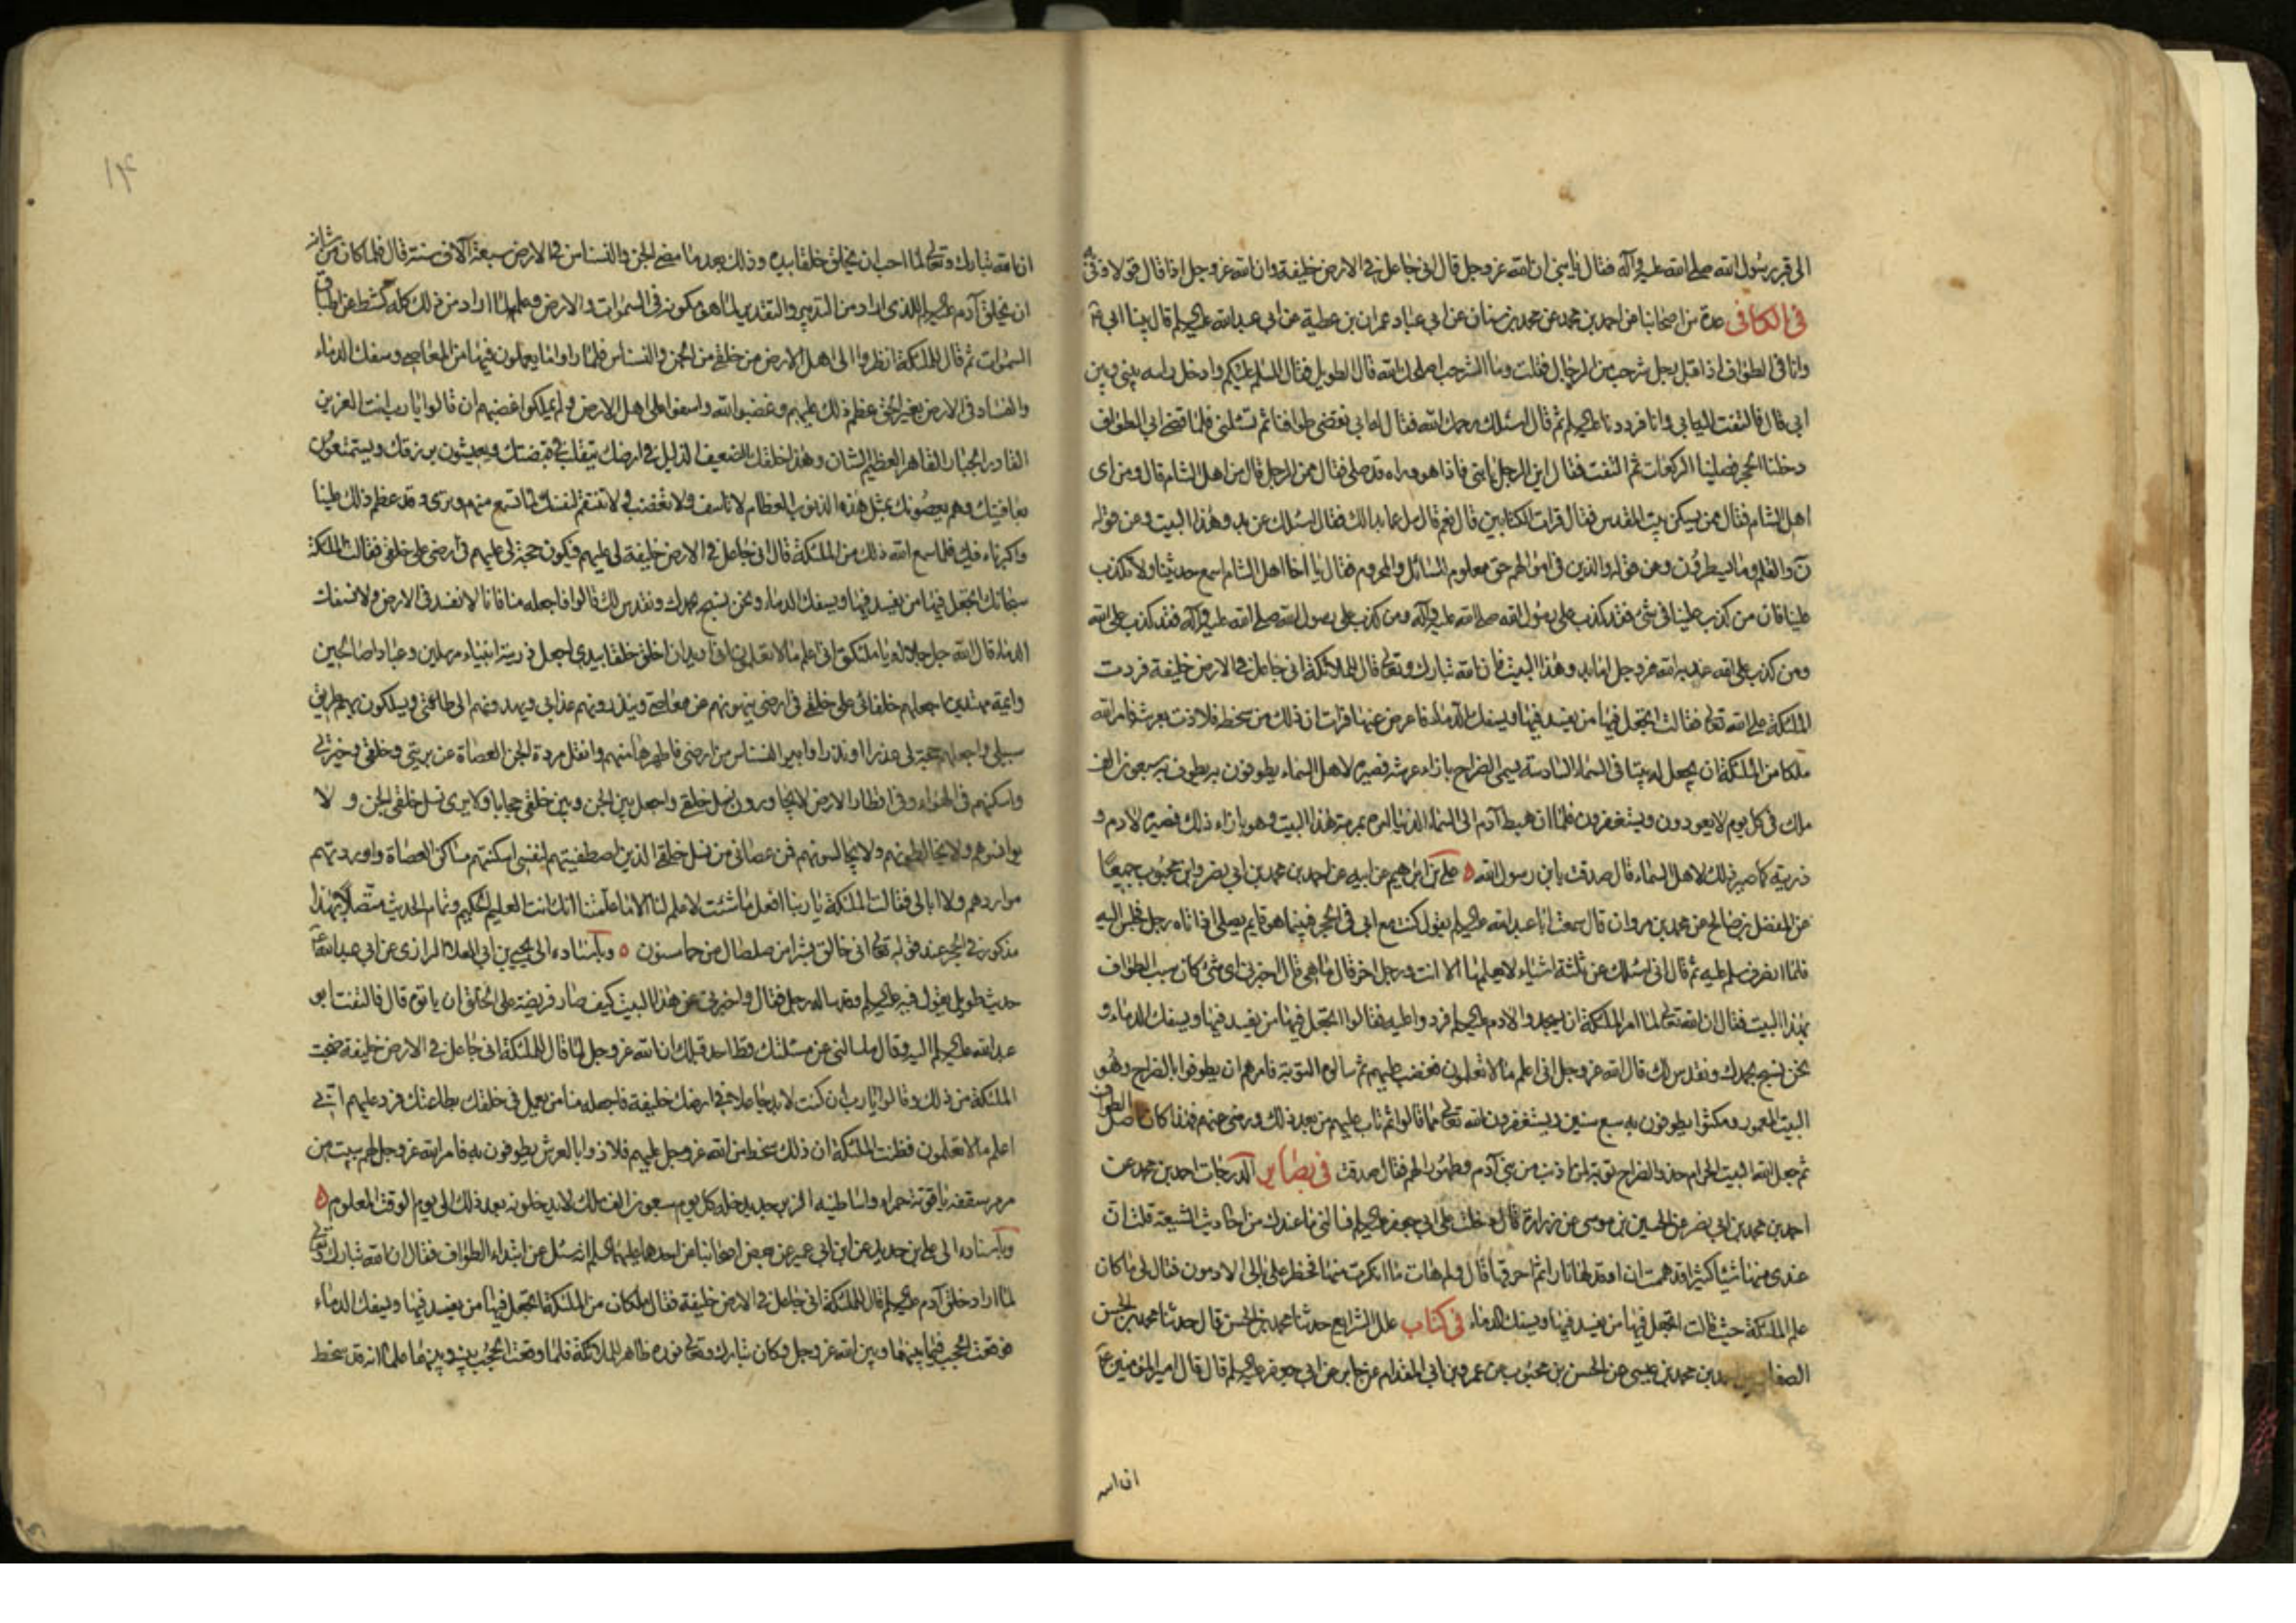 الى قبر رسول الله صلى الله عليه وآله فقال يا بنى ان الله عز وجل قال انى جاعل فى الارض خليفة وان الله عز وجل اذا قال قولا وفى به
فى الكافى عدة من اصحابنا عن احمد بن محمد عن محمد بن سنان عن ابى عباد عمران بن عطية عن ابى عبدالله عليه السلم قال بينا ابى ع
وانا فى الطواف اذ اقبل رجل شرجب من الرجال فقلت وما الشرجب اصلحك الله قال الطويل فقال السلم عليكم وادخل راسه بينى وبين
ابى قال فالتفت اليه ابى وانا فرددنا عليه السلم ثم قال اسئلك رحمك الله فقال له ابى نقضى طوافنا ثم تسئلنى فلما قضى ابى الطواف
دخلنا الحجر فصلينا الركعات ثم التفت فقال اين الرجل يا بنى فاذا هو وراه قد صلى فقال ممن الرجل قال من اهل الشام قال ومن اى
اهل الشام فقال ممن يسكن بيت المقدس فقال قرات الكتابين قال نعم قال سل عما بدا لك فقال اسئلك عن بدو هذا البيت وعن قوله
ن والقلم وما يسطرون وعن قوله والذين فى اموالهم حق معلوم للسائل والمحروم فقال يا اخا اهل الشام اسمع حديثنا ولا تكذب
علينا فان من كذب علينا فى شئ فقد كذب على رسول الله صلى الله عليه وآله ومن كذب على رسول الله صلى الله عليه وآله فقد كذب على الله
ومن كذب على الله عذبه الله عز وجل اما بدو هذا البيت فان الله تبارك وتعالى قال للملائكة انى جاعل فى الارض خليفة فردت
الملئكة على الله تعالى فقالت اتجعل فيها من يفسد فيها ويسفك الدماء فاعرض عنها فرات ان ذلك من سخطه فلاذت بعرشه فامر الله
ملكا من الملئكة ان يجعل له بيتا فى السماء السادسة يسمى الضراح بازاء عرشه فصيره لاهل السماء يطوفون به يطوف به سبعون الف
ملك فى كل يوم لا يعودون ويستغفرون فلما ان هبط آدم الى السماء الدنيا امره بمرمة هذا البيت وهو بازاء ذلك فصيره لادم و
ذريته كما صير ذلك لاهل السماء قال صدقت يا بن رسول الله ه على بن ابراهيم عن ابيه عن احمد بن محمد بن ابى نصر وابن محبوب جميعا
عن المفضل بن صالح عن محمد بن مروان قال سمعت ابا عبد الله عليه السلم يقول كنت مع ابى فى الحجر فبينما هو قايم يصلى اذ اتاه رجل فجلس اليه
فلما انصرف سلم عليه ثم قال انى اسئلك عن ثلثة اشياء لا يعلمها الا انت ورجل اخر قال ما هى قال اخبرنى اى شئ كان سبب الطواف
بهذا البيت فقال ان الله تعالى لما امر الملئكة ان يسجدوا لادم عليه السلم فردوا عليه فقالوا اتجعل فيها من يفسد فيها ويسفك الدماء و
نحن نسبح بحمدك ونقدس لك قال الله عز وجل انى اعلم ما لا تعلمون فغضب عليهم ثم سالوه التوبة فامرهم ان يطوفوا بالضراح وهو
البيت المعمور ومكثوا يطوفون به سبع سنين ويستغفرون الله تعالى مما قالوا ثم تاب عليهم من بعد ذلك ورضى عنهم فهذا كان اصل الطواف
ثم جعل الله البيت الحرام حذو الضراح توبة لمن اذنب من بنى آدم وطهورا لهم فقال صدقت فى بصاير الدرجات احمد بن محمد عن
احمد بن محمد بن ابى نصر عن الحسين بن موسى عن زرارة قال دخلت على ابى جعفر عليه السلم فسالنى ما عندك من احاديث الشيعة قلت ان
عندى منها شيئا كثيرا قد هممت ان اوقد لها نارا ثم احرقها قال ولم هات ما انكرت منها فخطر على بالى الادمون فقال لى ما كان
علم الملئكة حيث قالت اتجعل فيها من يفسد فيها ويسفك الدماء فى كتاب علل الشرايع حدثنا محمد بن الحسن قال حدثنا محمد بن الحسن
الصفار عن احمد بن محمد بن عيسى عن الحسن بن محبوب عن عمرو بن ابى المقدام عن جابر عن ابى جعفر عليه السلم قال قال امير المؤمنين ع
ان الله
١٤
ان الله تبارك وتعالى لما احب ان يخلق خلقا بيده وذلك بعد ما مضى الجن والنسناس فى الارض سبعة آلاف سنة قال فلما كان من شانه
ان يخلق آدم عليه السلم للذى اراد من التدبير والتقدير لما هو مكونه فى السموات والارض وعلمه لما اراد من ذلك كله كشط عن اطباق
السموات ثم قال للملئكة انظروا الى اهل الارض من خلقى من الجن والنسناس فلما راوا ما يعملون فيها من المعاصى وسفك الدماء
والفساد فى الارض بغير الحق عظم ذلك عليهم وغضبوا لله واسفوا على اهل الارض ولم يملكوا غضبهم ان قالوا يا رب انت العزيز
القادر الجبار القاهر العظيم الشان وهذا خلقك الضعيف الذليل فى ارضك يتقلب فى قبضتك ويعيشون برزقك ويستمتعون
بعافيتك وهم يعصونك بمثل هذه الذنوب العظام لا تاسف ولا تغضب ولا تنتقم لنفسك لما تسمع منهم وترى وقد عظم ذلك علينا
واكبرناه فيك فلما سمع الله ذلك من الملئكة قال انى جاعل فى الارض خليفة لى عليهم فيكون حجة لى عليهم فى ارضى على خلقى فقالت الملئكة
سبحانك اتجعل فيها من يفسد فيها ويسفك الدماء ونحن نسبح بحمدك ونقدس لك قالوا فاجعله منا فانا لا نفسد فى الارض ولا نسفك
الدماء قال الله جل جلاله يا ملئكتى انى اعلم ما لا تعلمون انى اريد ان اخلق خلقا بيدى اجعل ذريته انبياء مرسلين وعبادا صالحين
وائمة مهتدين اجعلهم خلفائى على خلقى فى ارضى ينهونهم عن معاصى وينذرونهم عذابى ويهدونهم الى طاعتى ويسلكون بهم طريق
سبيلى واجعلهم حجة لى عذرا او نذرا وابير النسناس من ارضى فاطهرها منهم وانقل مردة الجن العصاة عن بريتى وخلقى وخيرتى
واسكنهم فى الهواء وفى اقطار الارض لا يجاورون نسل خلقى واجعل بين الجن وبين خلقى حجابا ولا يرى نسل خلقى الجن و لا
يوانسوهم ولا يخالطونهم ولا يجالسونهم فمن عصانى من نسل خلقى الذين اصطفيتهم لنفسى اسكنتهم مساكن العصاة واوردتهم
مواردهم ولا ابالى فقالت الملئكة يا ربنا افعل ما شئت لا علم لنا الا ما علمتنا انك انت العليم الحكيم وتمام الحديث متصلا بهذا
مذكور فى الحجر عند قوله تعالى انى خالق بشرا من صلصال من حماء مسنون ه وباسناده الى يحيى بن ابى العلا الرازى عن ابى عبد الله ع
حديث طويل يقول فيه عليه السلم وقد ساله رجل فقال واخبرنى عن هذا البيت كيف صار فريضة على الخلق ان ياتوه قال فالتفت ابو
عبد الله عليه السلم اليه وقال ما سالنى عن مسئلتك قط احد قبلك ان الله عز وجل لما قال للملئكة انى جاعل فى الارض خليفة ضجت
الملئكة من ذلك وقالوا يا رب ان كنت لا بد جاعلا فى ارضك خليفة فاجعله منا من يعمل فى خلقك بطاعتك فرد عليهم انى
اعلم ما لا تعلمون فظنت الملئكة ان ذلك سخط من الله عز وجل عليهم فلاذوا بالعرش يطوفون به فامر الله عز وجل لهم ببيت من
مرمر سقفه ياقوتة حمراء واساطينه الزبرجد يدخله كل يوم سبعون الف ملك لا يدخلونه بعد ذلك الى يوم الوقت المعلوم ه
وباسناده الى على بن حديد عن ابن ابى عمير عن بعض اصحابنا عن احدهما عليهما السلم انه سئل عن ابتداء الطواف فقال ان الله تبارك وتعالى
لما اراد خلق آدم عليه السلم قال للملئكة انى جاعل فى الارض خليفة فقال ملكان من الملئكة اتجعل فيها من يفسد فيها ويسفك الدماء
فوقعت الحجب فيما بينهما وبين الله عز وجل وكان تبارك وتعالى نوره ظاهر للملائكة فلما وقعت الحجب بينه وبينهما علما انه قد سخط